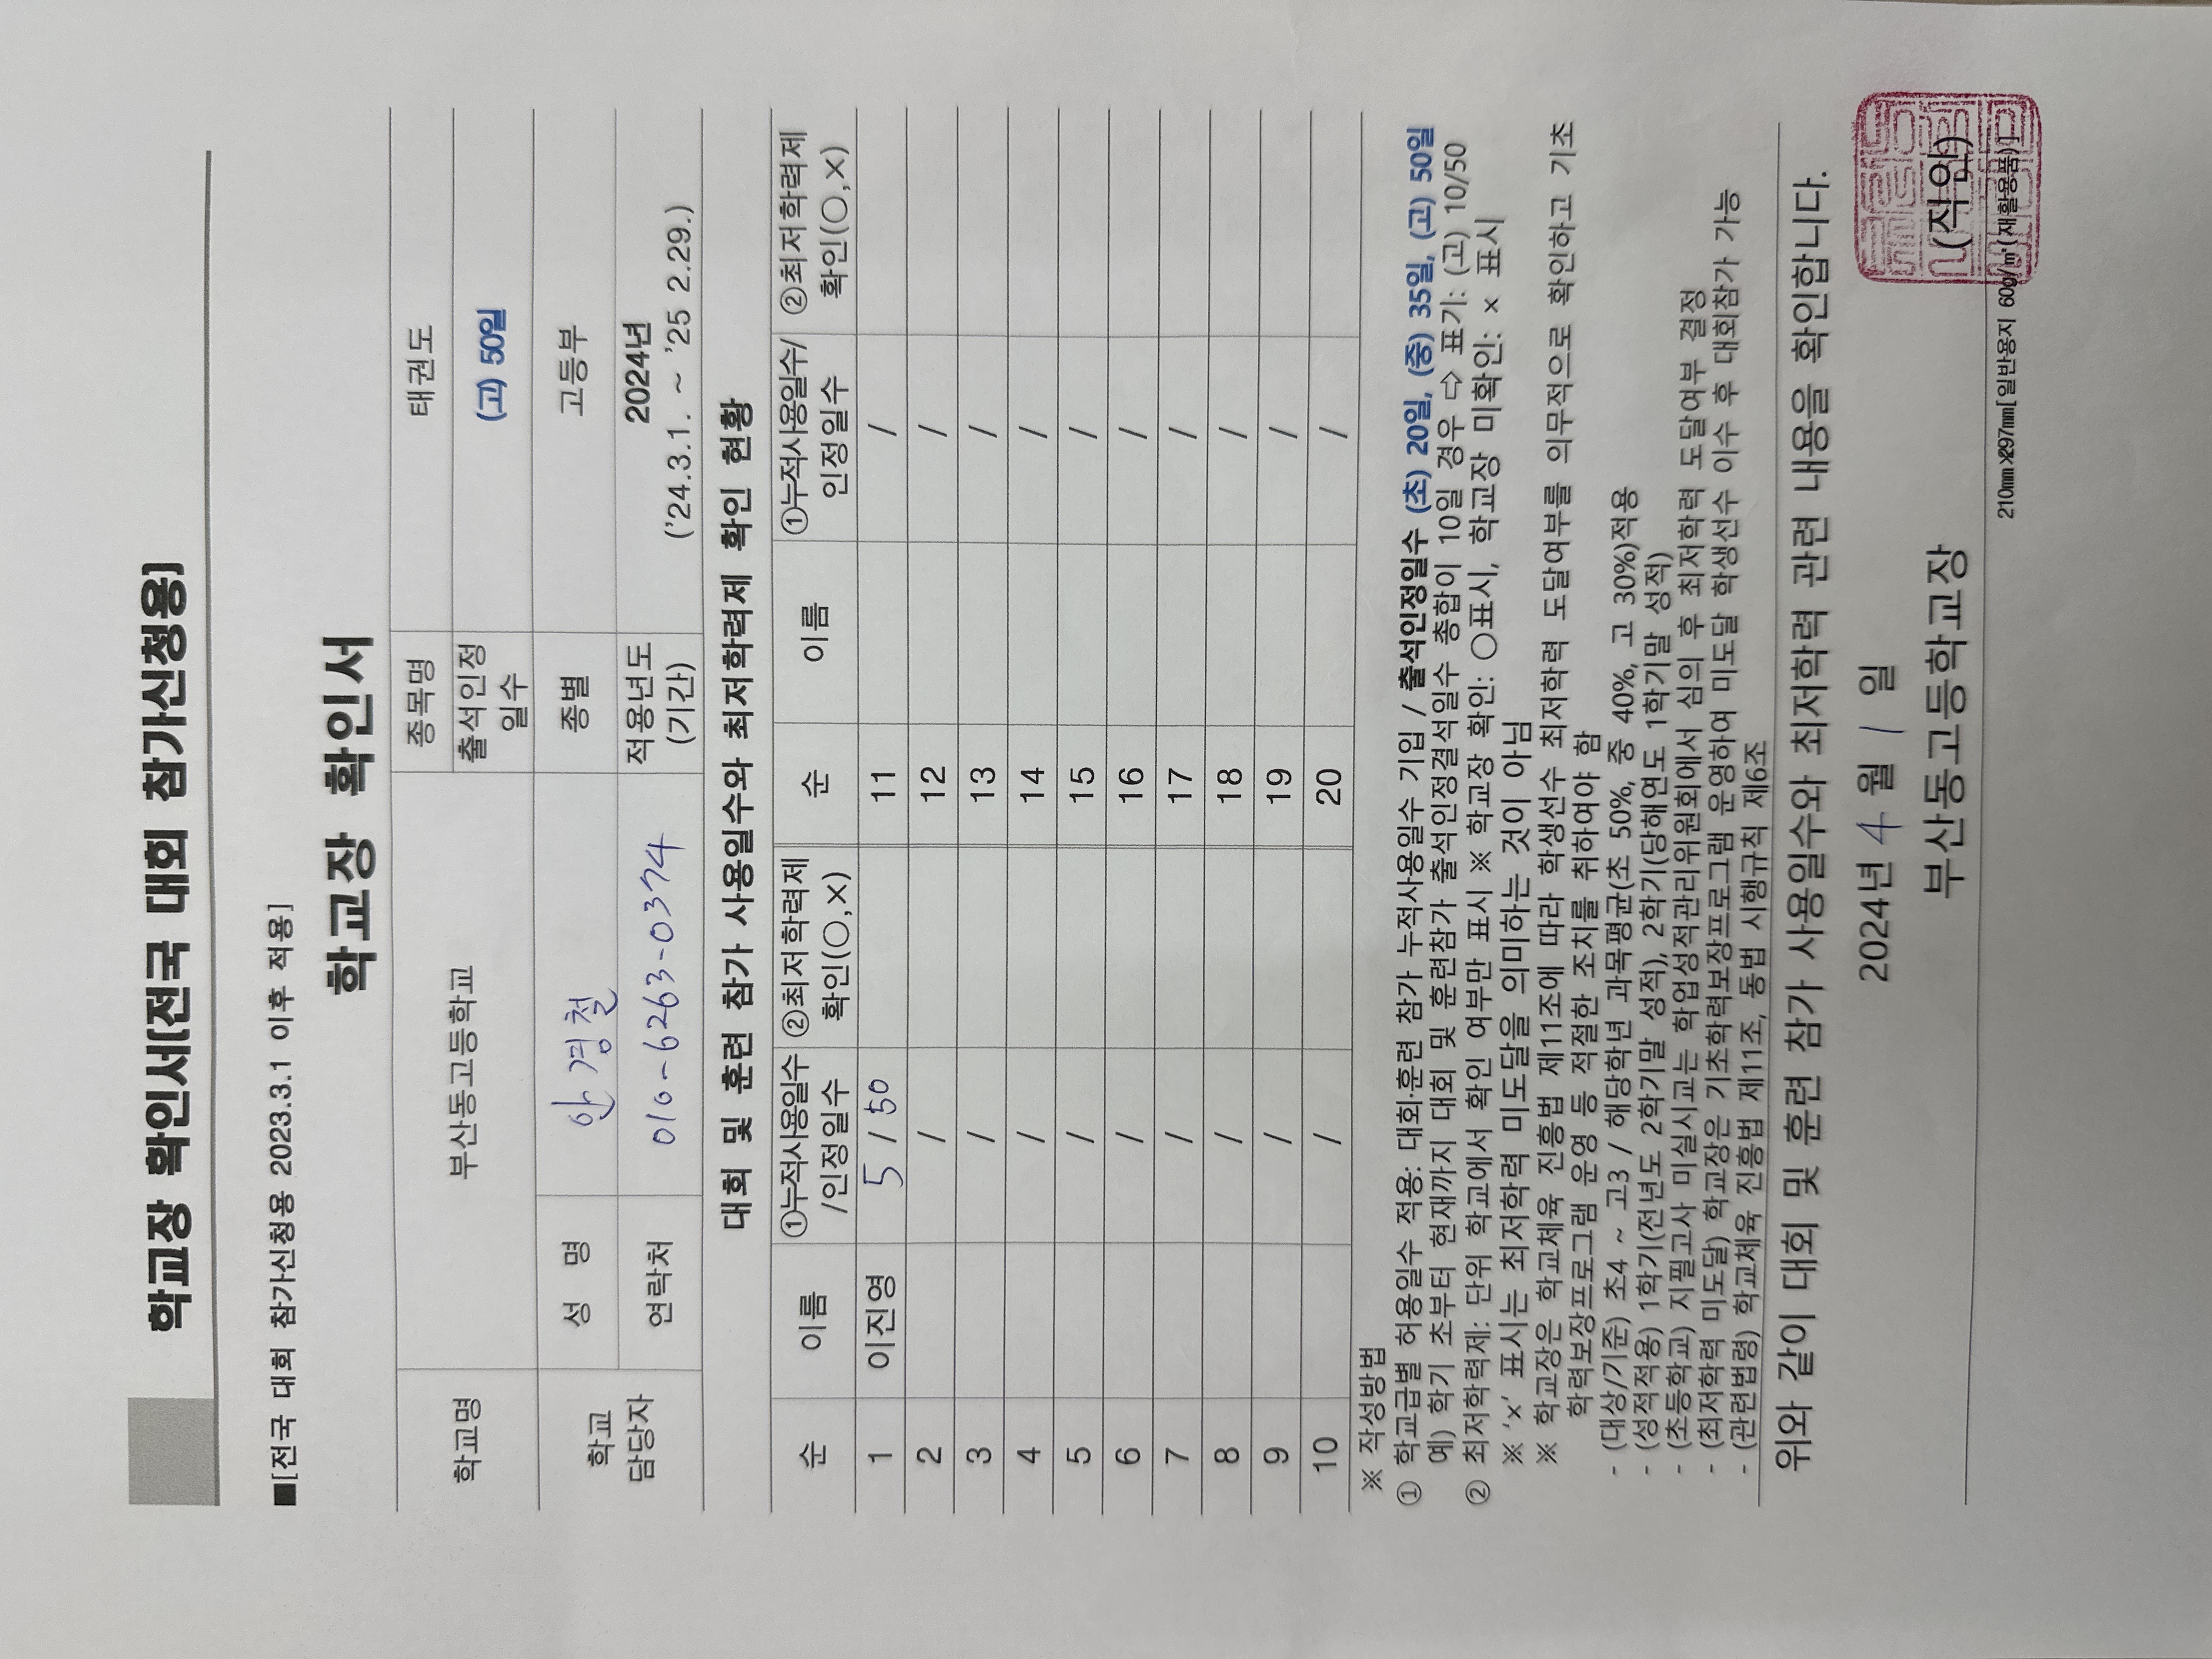 학교장 확인서(전국 대회 참가신청용)
■[전국 대회 참가신청용 2023.3.1 이후 적용]
학교장 확인서
학교명 부산동고등학교 종목명 태권도
출석인정 일수 (고) 50일
학교 담당자 성 명 안경철 종별 고등부
연락처 010-6263-0374 적용년도 (기간) 2024년 ('24.3.1. ~ '25 2.29.)
대회 및 훈련 참가 사용일수와 최저학력제 확인 현황
순 이름 ①누적사용일수 /인정일수 ②최저학력제 확인(○,×) 순 이름 ①누적사용일수/ 인정일수 ②최저학력제 확인(○,×)
1 이진영 5 / 50 11 /
2 / 12 /
3 / 13 /
4 / 14 /
5 / 15 /
6 / 16 /
7 / 17 /
8 / 18 /
9 / 19 /
10 / 20 /
※ 작성방법
① 학교급별 허용일수 적용: 대회·훈련 참가 누적사용일수 기입 / 출석인정일수 (초) 20일, (중) 35일, (고) 50일
예) 학기 초부터 현재까지 대회 및 훈련참가 출석인정결석일수 총합이 10일 경우 ⇨ 표기: (고) 10/50
② 최저학력제: 단위 학교에서 확인 여부만 표시 ※ 학교장 확인: ○표시, 학교장 미확인: × 표시
※ ‘×’ 표시는 최저학력 미도달을 의미하는 것이 아님
※ 학교장은 학교체육 진흥법 제11조에 따라 학생선수 최저학력 도달여부를 의무적으로 확인하고 기초
학력보장프로그램 운영 등 적절한 조치를 취하여야 함
- (대상/기준) 초4 ~ 고3 / 해당학년 과목평균(초 50%, 중 40%, 고 30%)적용
- (성적적용) 1학기(전년도 2학기말 성적), 2학기(당해연도 1학기말 성적)
- (초등학교) 지필고사 미실시교는 학업성적관리위원회에서 심의 후 최저학력 도달여부 결정
- (최저학력 미도달) 학교장은 기초학력보장프로그램 운영하여 미도달 학생선수 이수 후 대회참가 가능
- (관련법령) 학교체육 진흥법 제11조, 동법 시행규칙 제6조
위와 같이 대회 및 훈련 참가 사용일수와 최저학력 관련 내용을 확인합니다.
2024년 4 월 1 일
부산동고등학교장 (직인)
210㎜×297㎜[일반용지 60g/㎡(재활용품)]